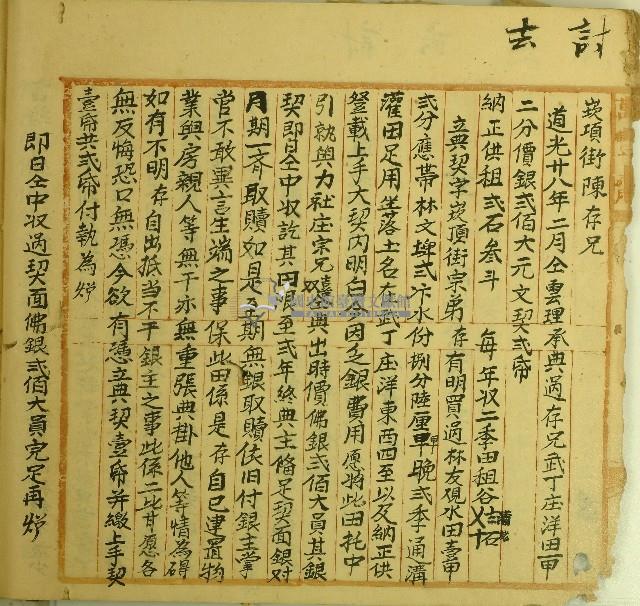 討去
崁項街陳存兄
道光廿八年二月仝雲理承典過存兄武丁庄洋田一甲
二分價銀弍佰大元文契弍帋
納正供租弍石叁斗 每年收二季田租谷 石
立典契字崁頂街宗弟存有明買過林友硯水田壹甲
弍分應帶林文埤弍汴水份捌分陸厘早晚弍季通溝
灌田足用坐落土名在武丁庄洋東西四至以及納正供
登載上手大契内明白今因乏銀費用愿將此田托中
引就與力社庄宗兄 出典出時價佛銀弍佰大員其銀
契即日仝中收訖其田限至弍年終典主備足契面銀对
月期一齐取贖如是至期無銀取贖依旧付銀主掌
管不敢異言生端之事保此田係是存自己建置物
業與房親人等無干亦無重張典掛他人等情為碍
如有不明存自出抵当不干銀主之事此係二比甘愿各
無反悔恐口無憑今欲有憑立典契壹帋并繳上手契
壹帋共弍帋付執為炤
即日仝中收過契面佛銀弍佰大員完足再炤